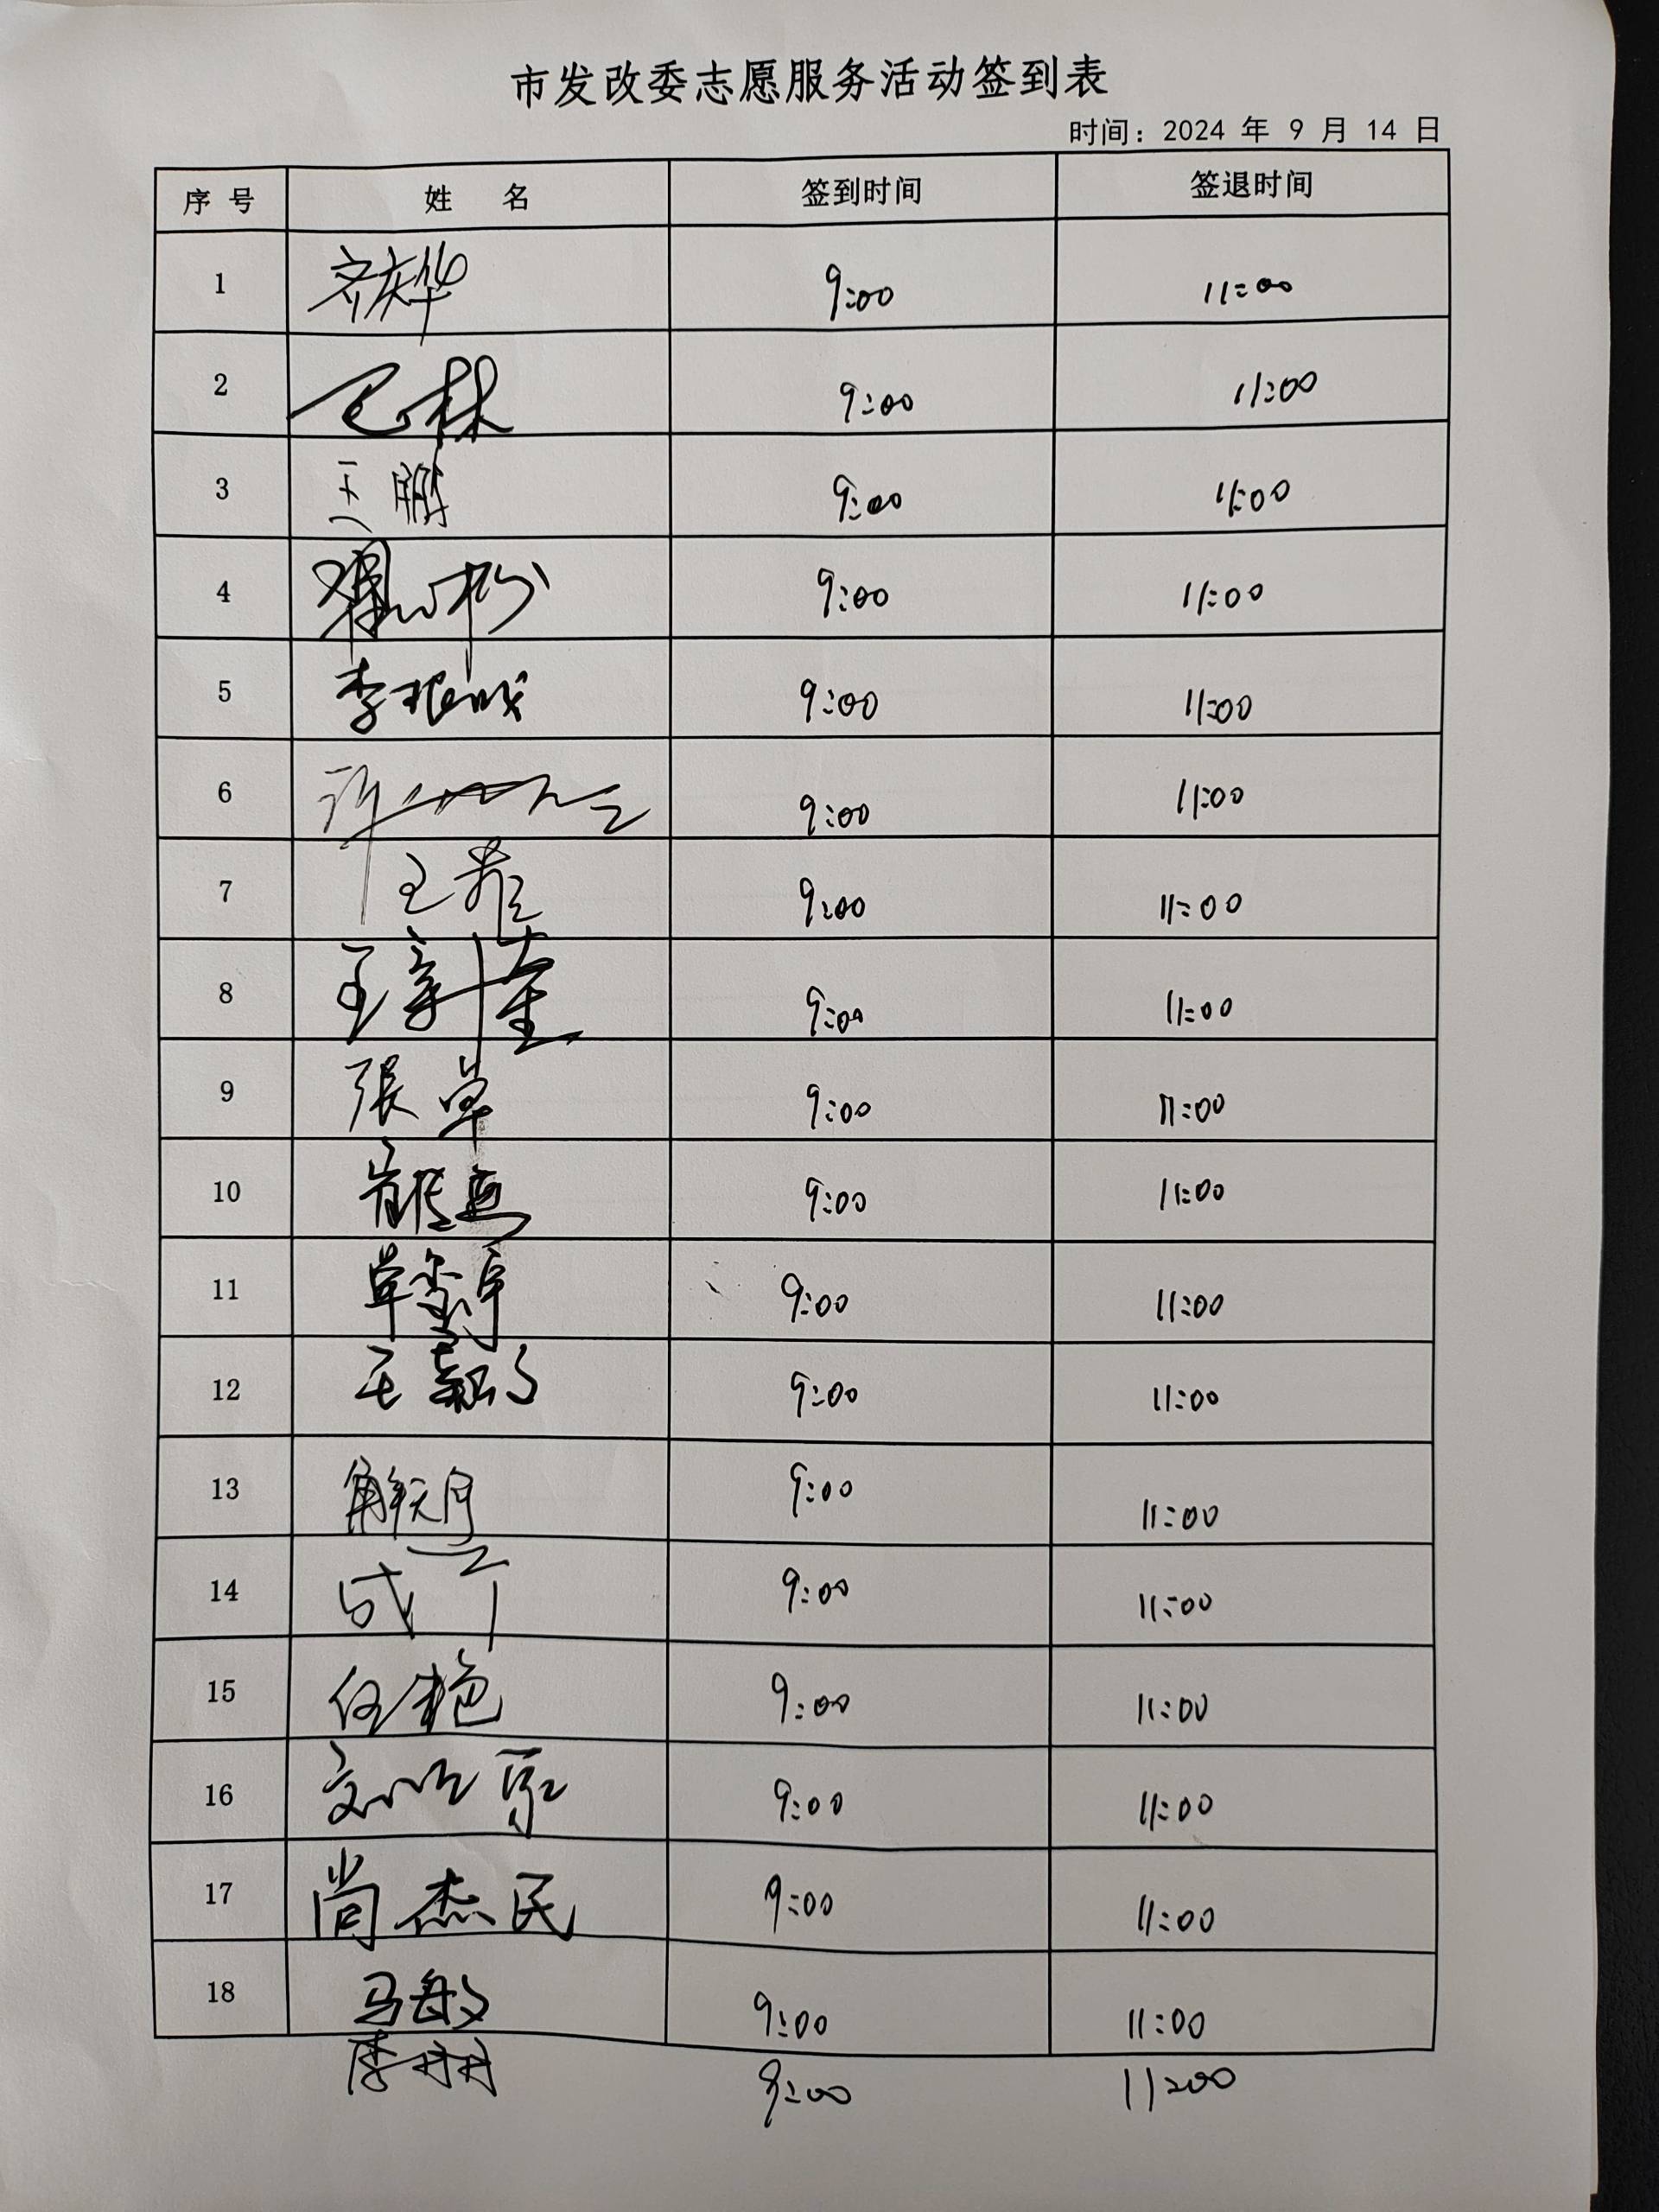 市发改委志愿服务活动签到表
时间：2024 年 9 月 14 日
序 号 姓 名 签到时间 签退时间
1 齐庆华 9:00 11:00
2 林 9:00 11:00
3 王鹏 9:00 11:00
4 9:00 11:00
5 李 9:00 11:00
6 许 9:00 11:00
7 王 9:00 11:00
8 王 9:00 11:00
9 張卓 9:00 11:00
10 9:00 11:00
11 9:00 11:00
12 王 9:00 11:00
13 解 9:00 11:00
14 成 9:00 11:00
15 任艳 9:00 11:00
16 9:00 11:00
17 尚杰民 9:00 11:00
18 马敏 9:00 11:00
李 9:00 11:00